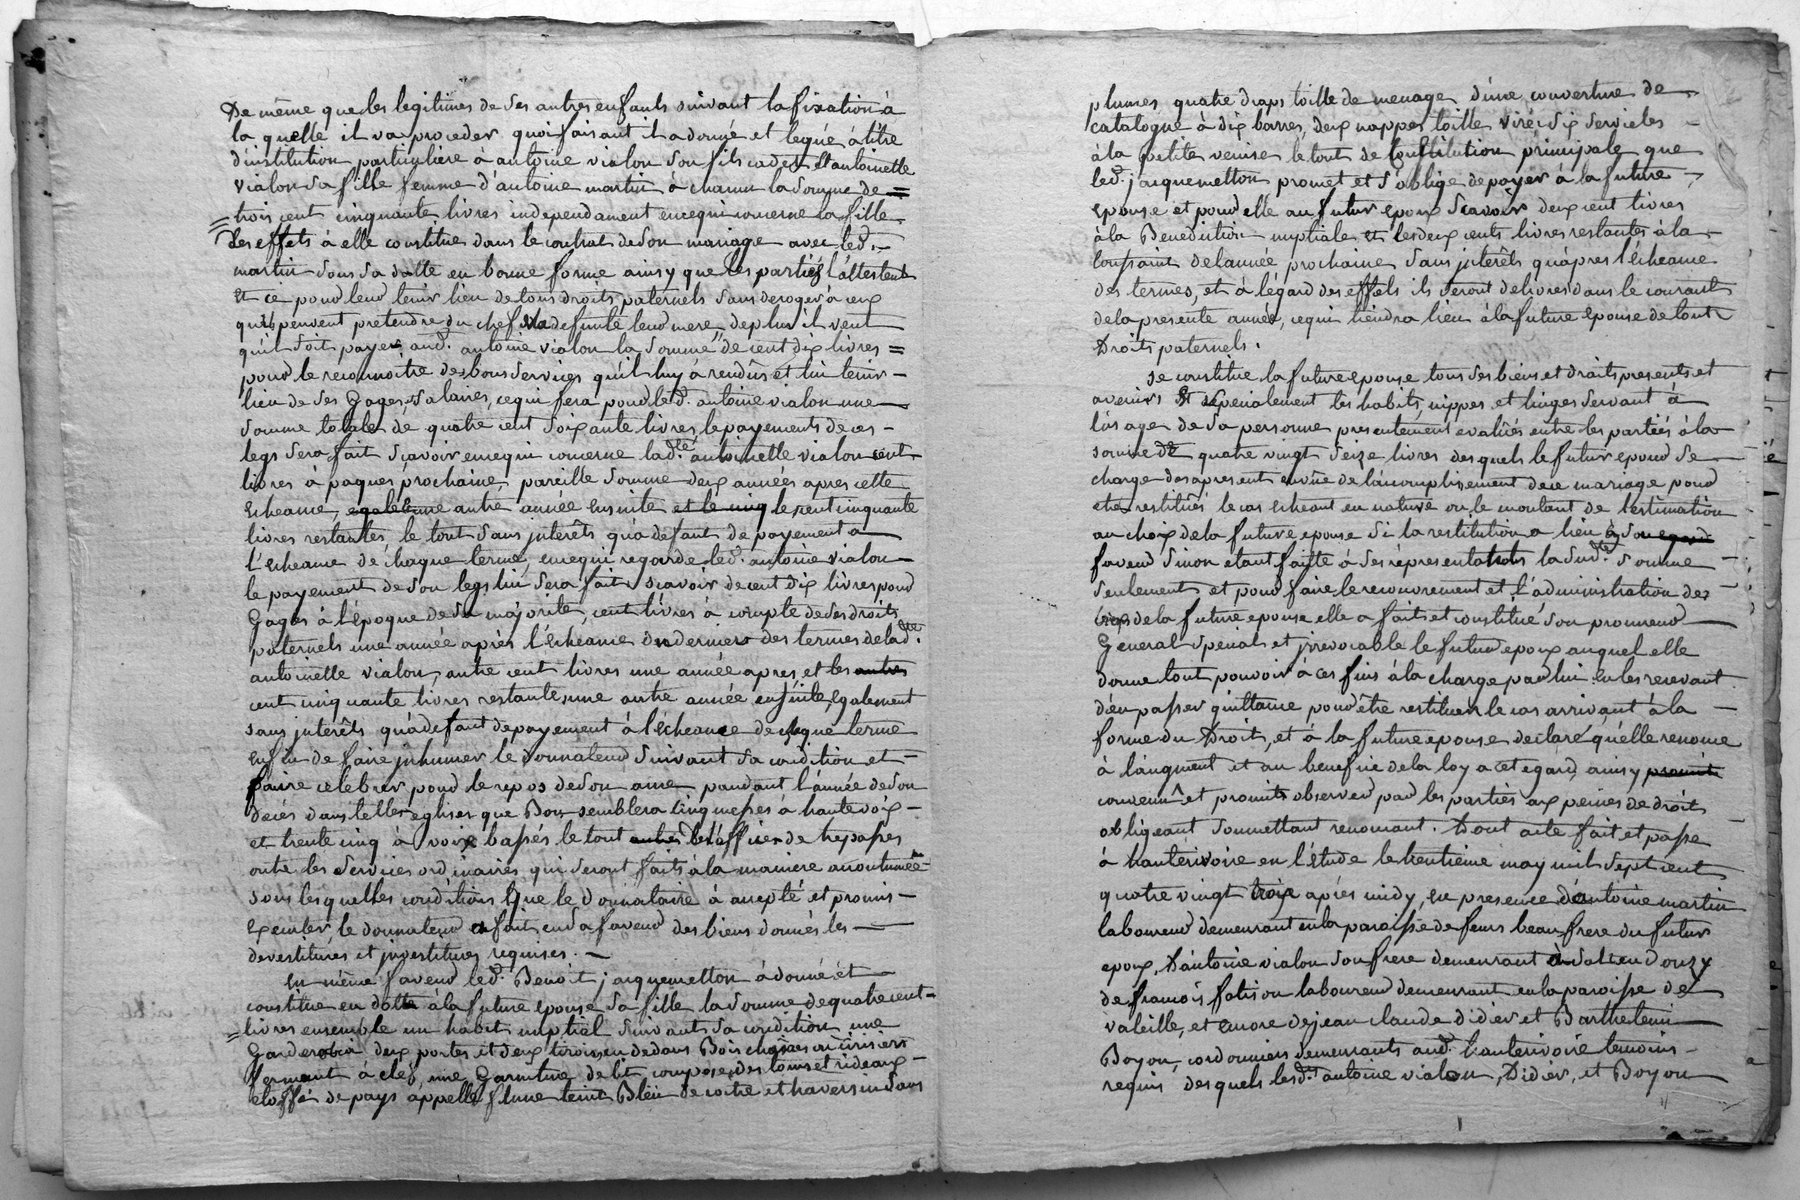 De même que les legitimes de ses autres enfants suivant la fixation à
la quelle il va proceder quoi faisant il a donné et legué à titre
d'institution particuliere à antoine vialon son fils cadet et antoinette
vialon sa fille femme d'antoine martin à chacun la somme de =
trois cent cinquante livres independament en ce qui concerne la fille
des effets à elle constitué dans le contrat de son mariage avec led. –
martin sous sa datte en bonne forme ainsy que les parties l'attestent
Et ce pour leur tenir lieu de tous droits paternels sans deroger à ceux
qu'ils peuvent pretendre du chef de la defunte leur mere, de plus il veut
qu'il soit payer aud. antoine vialon la somme de cent dix livres =
pour le reconnoitre des bons services qu'il luy à rendûs et lui tenir –
lieu de ses Gages, salaires, ce qui fera pour led. antoine vialon une
somme totale de quatre cent soixante livres, le payements de ces –
legs sera fait scavoir en ce qui concerne lad.te antoinette vialon cent
livres à paques prochaine, pareille somme deux années apres cette
Echeance, une autre année ensuite et le cinq le cent cinquante
livres restantes, le tout sans interêts qu'à defaut de payement a
l'Echeance de chaque terme, en ce qui regarde led. antoine vialon
le payement de son legs lui sera fait scavoir de cent dix livres pour
Gages à l'époque de sa majorité, cent livres à compte de ses droits
paternels une année après l'échéance du dernier des termes de lad.te
antoinette vialon, autre cent livres une année apres et les autres
cent cinquante livres restante, une autre année ensuite, Egalement
sans interêts qu'à defaut de payement à l'échéance de chaque terme
enfin de faire inhumer le donnateur suivant sa condition et –
faire celebrer pour le repos de son ame pendant l'année de son
decès dans telles églises que Bon semblera cinq messes à haute voix –
et trente cinq à voix basses le tout de trepasses
outre les services ordinaires qui seront faits à la maniere accoutumée
sous lesquelles conditions que le donnataire à accepté et promis –
Executer, le donnateur a fait en sa faveur des biens donnés les
devestitures et investitures requises. –
En même faveur led. Benoit jacquemetton à donné et
constitue en dotte à la future epouse sa fille la somme de quatre cent =
livres ensemble un habit nuptial suivant sa condition, une
Garderobe à deux portes et deux tiroirs en dedans Bois cerisiers
fermant à clef, une Garniture de lit composée des tours et rideaux –
etoffe de pays appellé flune teint Bleu de coitre et traversin dans
plumes quatre draps toille de menage d'une couverture de
catalogne à dix barres, deux nappes toille six servietes –
à la petite venise le tout de constitution principale que
led. jacquemetton promet et s'oblige de payer à la future
epouse et pour elle au futur epoux scavoir deux cent livres
à la Benediction nuptiale et les deux cents livres restantes à la
toussaint de l'année prochaine sans interêts qu'apres l'Echeance
des termes, et à l'égard des effets ils seront delivres dans le courant
de la presente année, ce qui tiendra lieu à la future epouse de tout
Droits paternels.
Se constitue la future epouse tous ses biens et droits presents et
avenirs Et specialement les habits, nippes et linges servant à
l'usage de sa personne presentement evalués entre les parties à la
somme de quatre vingt seize livres desquels le futur epoux se
charge des apresent en vûe de l'accomplissement de ce mariage pour
etre restitués le cas echeant en nature ou le montant de l'estimation
au choix de la future epouse si la restitution a lieu à son
faveur sinon etant faitte à ses representations la sud.te somme
seulement et pour faire le recouvrement et l'administration des
de la future epouse elle a fait et constitué son procureur
General special et irrevocable le futur epoux auquel elle
donne tout pouvoir à ces fins à la charge par lui en les recevant
d'en passer quittance pour être restituer le cas arrivant à la –
forme du Droit, et à la future epouse declaré qu'elle renonce
à l'augment et au benefice de la loy a cet egard, ainsy promis
convenu et promis observer par les parties aux peines de droit
obligeant soumettant renonçant. Dont acte fait et passe
à hauterivoire en l'étude le trentième may mil sept cent
quatre vingt trois après midy, en presence d'antoine martin
laboureur demeurant en la paroisse de feurs beau frere du futur
epoux, d'antoine vialon son frere demeurant à salt en donzy
de francois fatis ou laboureur demeurant en la paroisse de
valeille, et encore de jean claude didier et Barthelemi
Boyon, cordonniers demeurants aud. hauterivoire temoins –
requis des quels lesd.ts antoine vialon, Didier, et Boyon